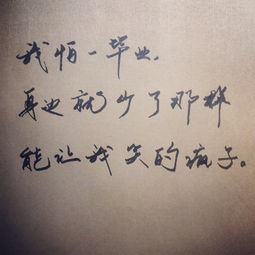 我怕一毕业，
身边就少了那样
能让我笑的疯子。